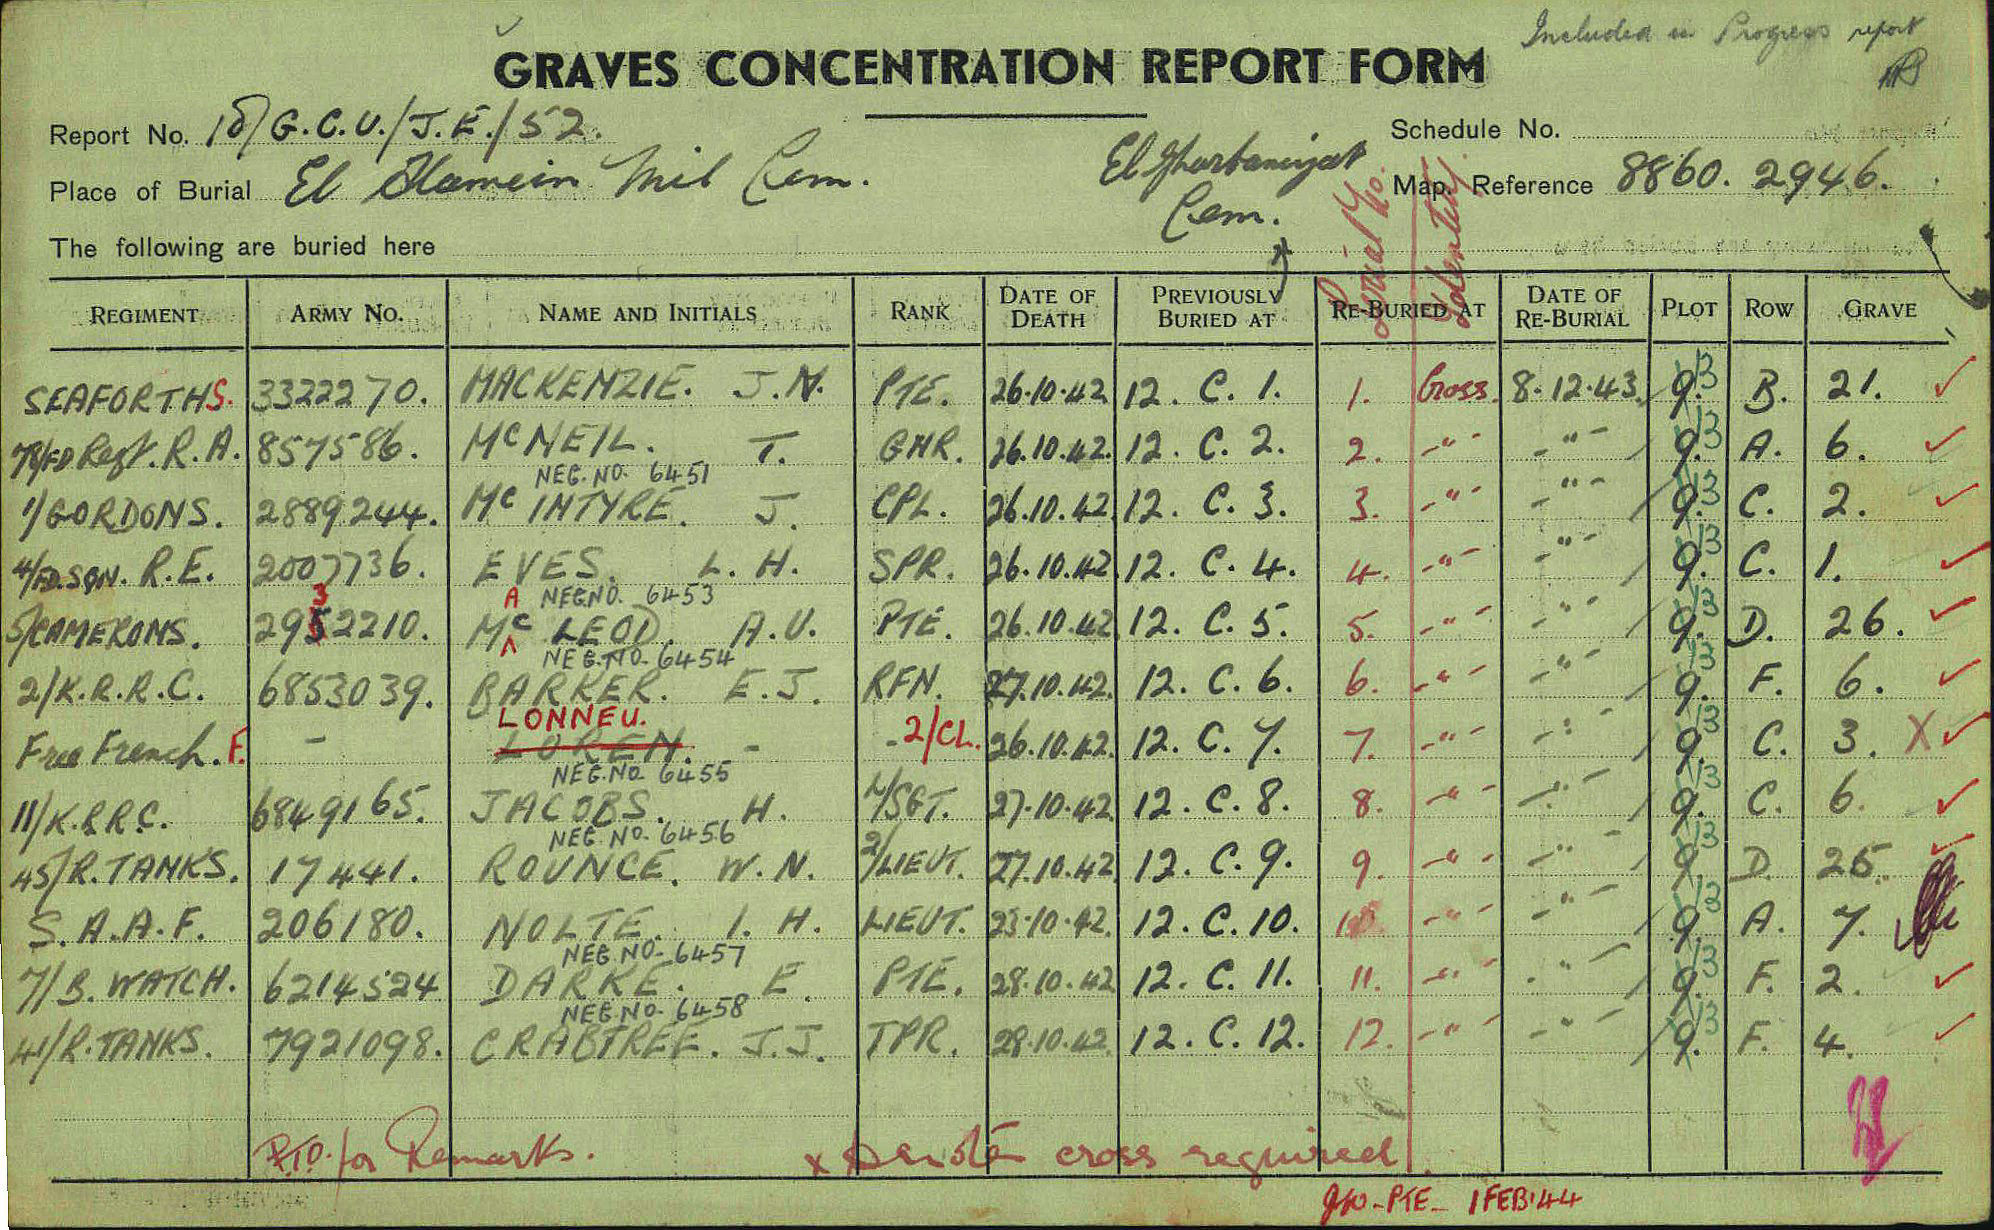 Included in Progress report
GRAVES CONCENTRATION REPORT FORM
Report No. 18/G.C.U./J.E./52. Schedule No.
Place of Burial El Alamein Mil Cem. El Gharbaniyat Cem. Map Reference 8860. 2946.
The following are buried here
Serial No. Identity.
REGIMENT ARMY No. NAME AND INITIALS RANK DATE OF DEATH PREVIOUSLY BURIED AT RE-BURIED AT DATE OF RE-BURIAL PLOT ROW GRAVE
SEAFORTHS. 3322270. MACKENZIE. J.N. PTE. 26.10.42 12. C. 1. 1. Cross. 8.12.43. 9. 13 B. 21.
78/FD Regt. R.A. 857586. McNEIL. T. GNR. 26.10.42. 12. C. 2. 2. -"- -"- 9. 13 A. 6.
NEG. NO. 6451
1/GORDONS. 2889244. Mc INTYRE. J. CPL. 26.10.42. 12. C. 3. 3. -"- -"- 9. 13 C. 2.
4/FD.SQN. R.E. 2007736. EVES. L. H. SPR. 26.10.42 12. C. 4. 4. -"- -"- 9. 13 C. 1.
3 A NEG.NO. 6453
5/CAMERONS. 2952210. Mc LEOD. A.U. PTE. 26.10.42 12. C. 5. 5. -"- -"- 9. 13 D. 26.
NEG.NO. 6454
2/K.R.R.C. 6853039. BARKER. E.J. RFN. 27.10.42. 12. C. 6. 6. -"- -"- 9. 13 F. 6.
LONNEU.
Free French. F. - LOREN. - - 2/CL. 26.10.42. 12. C. 7. 7. -"- -"- 9. 13 C. 3. X
NEG.NO. 6455
11/K.R.R.C. 6849165. JACOBS. H. L/SGT. 27.10.42 12. C. 8. 8. -"- -"- 9. 13 C. 6.
NEG. NO. 6456
45/R.TANKS. 17441. ROUNCE. W. N. 2/LIEUT. 27.10.42 12. C. 9. 9. -"- -"- 9. 13 D. 25.
S.A.A.F. 206180. NOLTE. I. H. LIEUT. 25.10.42. 12. C. 10. 10. -"- -"- 9. 13 A. 7.
NEG.NO. 6457
7/B. WATCH. 6214524 DARKE. E. PTE. 28.10.42 12. C. 11. 11. -"- -"- 9. 13 F. 2.
NEG.NO. 6458
41/R.TANKS. 7921098. CRABTREE. J.J. TPR. 28.10.42. 12. C. 12. 12. -"- -"- 9. 13 F. 4.
P.T.O. for Remarks. x cross required.
PTE - 1 FEB 44